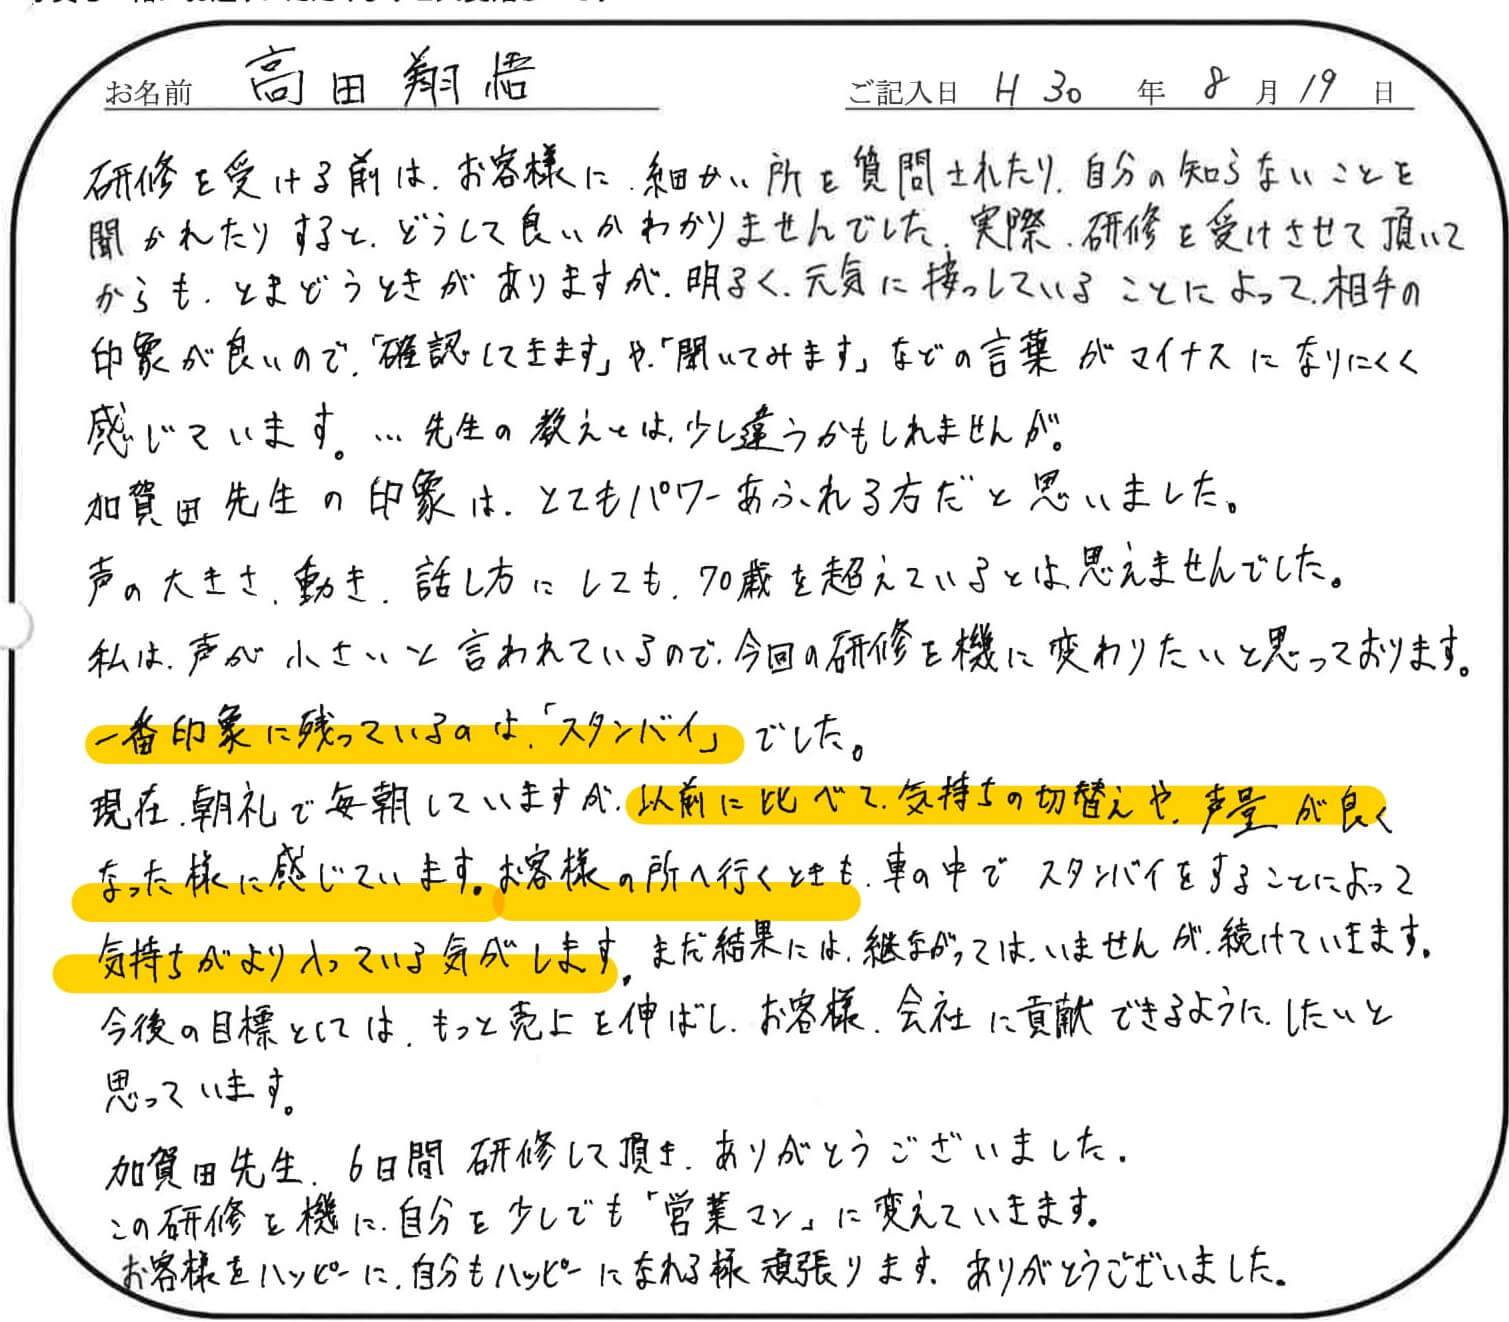 お名前 高田翔悟 ご記入日 H30年8月19日
研修を受ける前は、お客様に、細かい所を質問されたり、自分の知らないことを
聞かれたりすると、どうして良いかわかりませんでした。実際、研修を受けさせて頂いて
からも、とまどうときがありますが、明るく、元気に接っしていることによって、相手の
印象が良いので、「確認してきます」や、「聞いてみます」などの言葉がマイナスになりにくく
感じています。…先生の教えとは、少し違うかもしれませんが。
加賀田先生の印象は、とてもパワーあふれる方だと思いました。
声の大きさ、動き、話し方にしても、70歳を超えているとは、思えませんでした。
私は、声が小さいと言われているので、今回の研修を機に変わりたいと思っております。
一番印象に残っているのは、「スタンバイ」でした。
現在、朝礼で毎朝していますが、以前に比べて、気持ちの切替えや、声量が良く
なった様に感じています。お客様の所へ行くときも、車の中でスタンバイをすることによって
気持ちがより入っている気がします。まだ結果には、継ながっては、いませんが、続けていきます。
今後の目標としては、もっと売上を伸ばし、お客様、会社に貢献できるように、したいと
思っています。
加賀田先生、6日間研修して頂き、ありがとうございました。
この研修を機に、自分を少しでも「営業マン」に変えていきます。
お客様をハッピーに、自分もハッピーになれる様頑張ります。ありがとうございました。